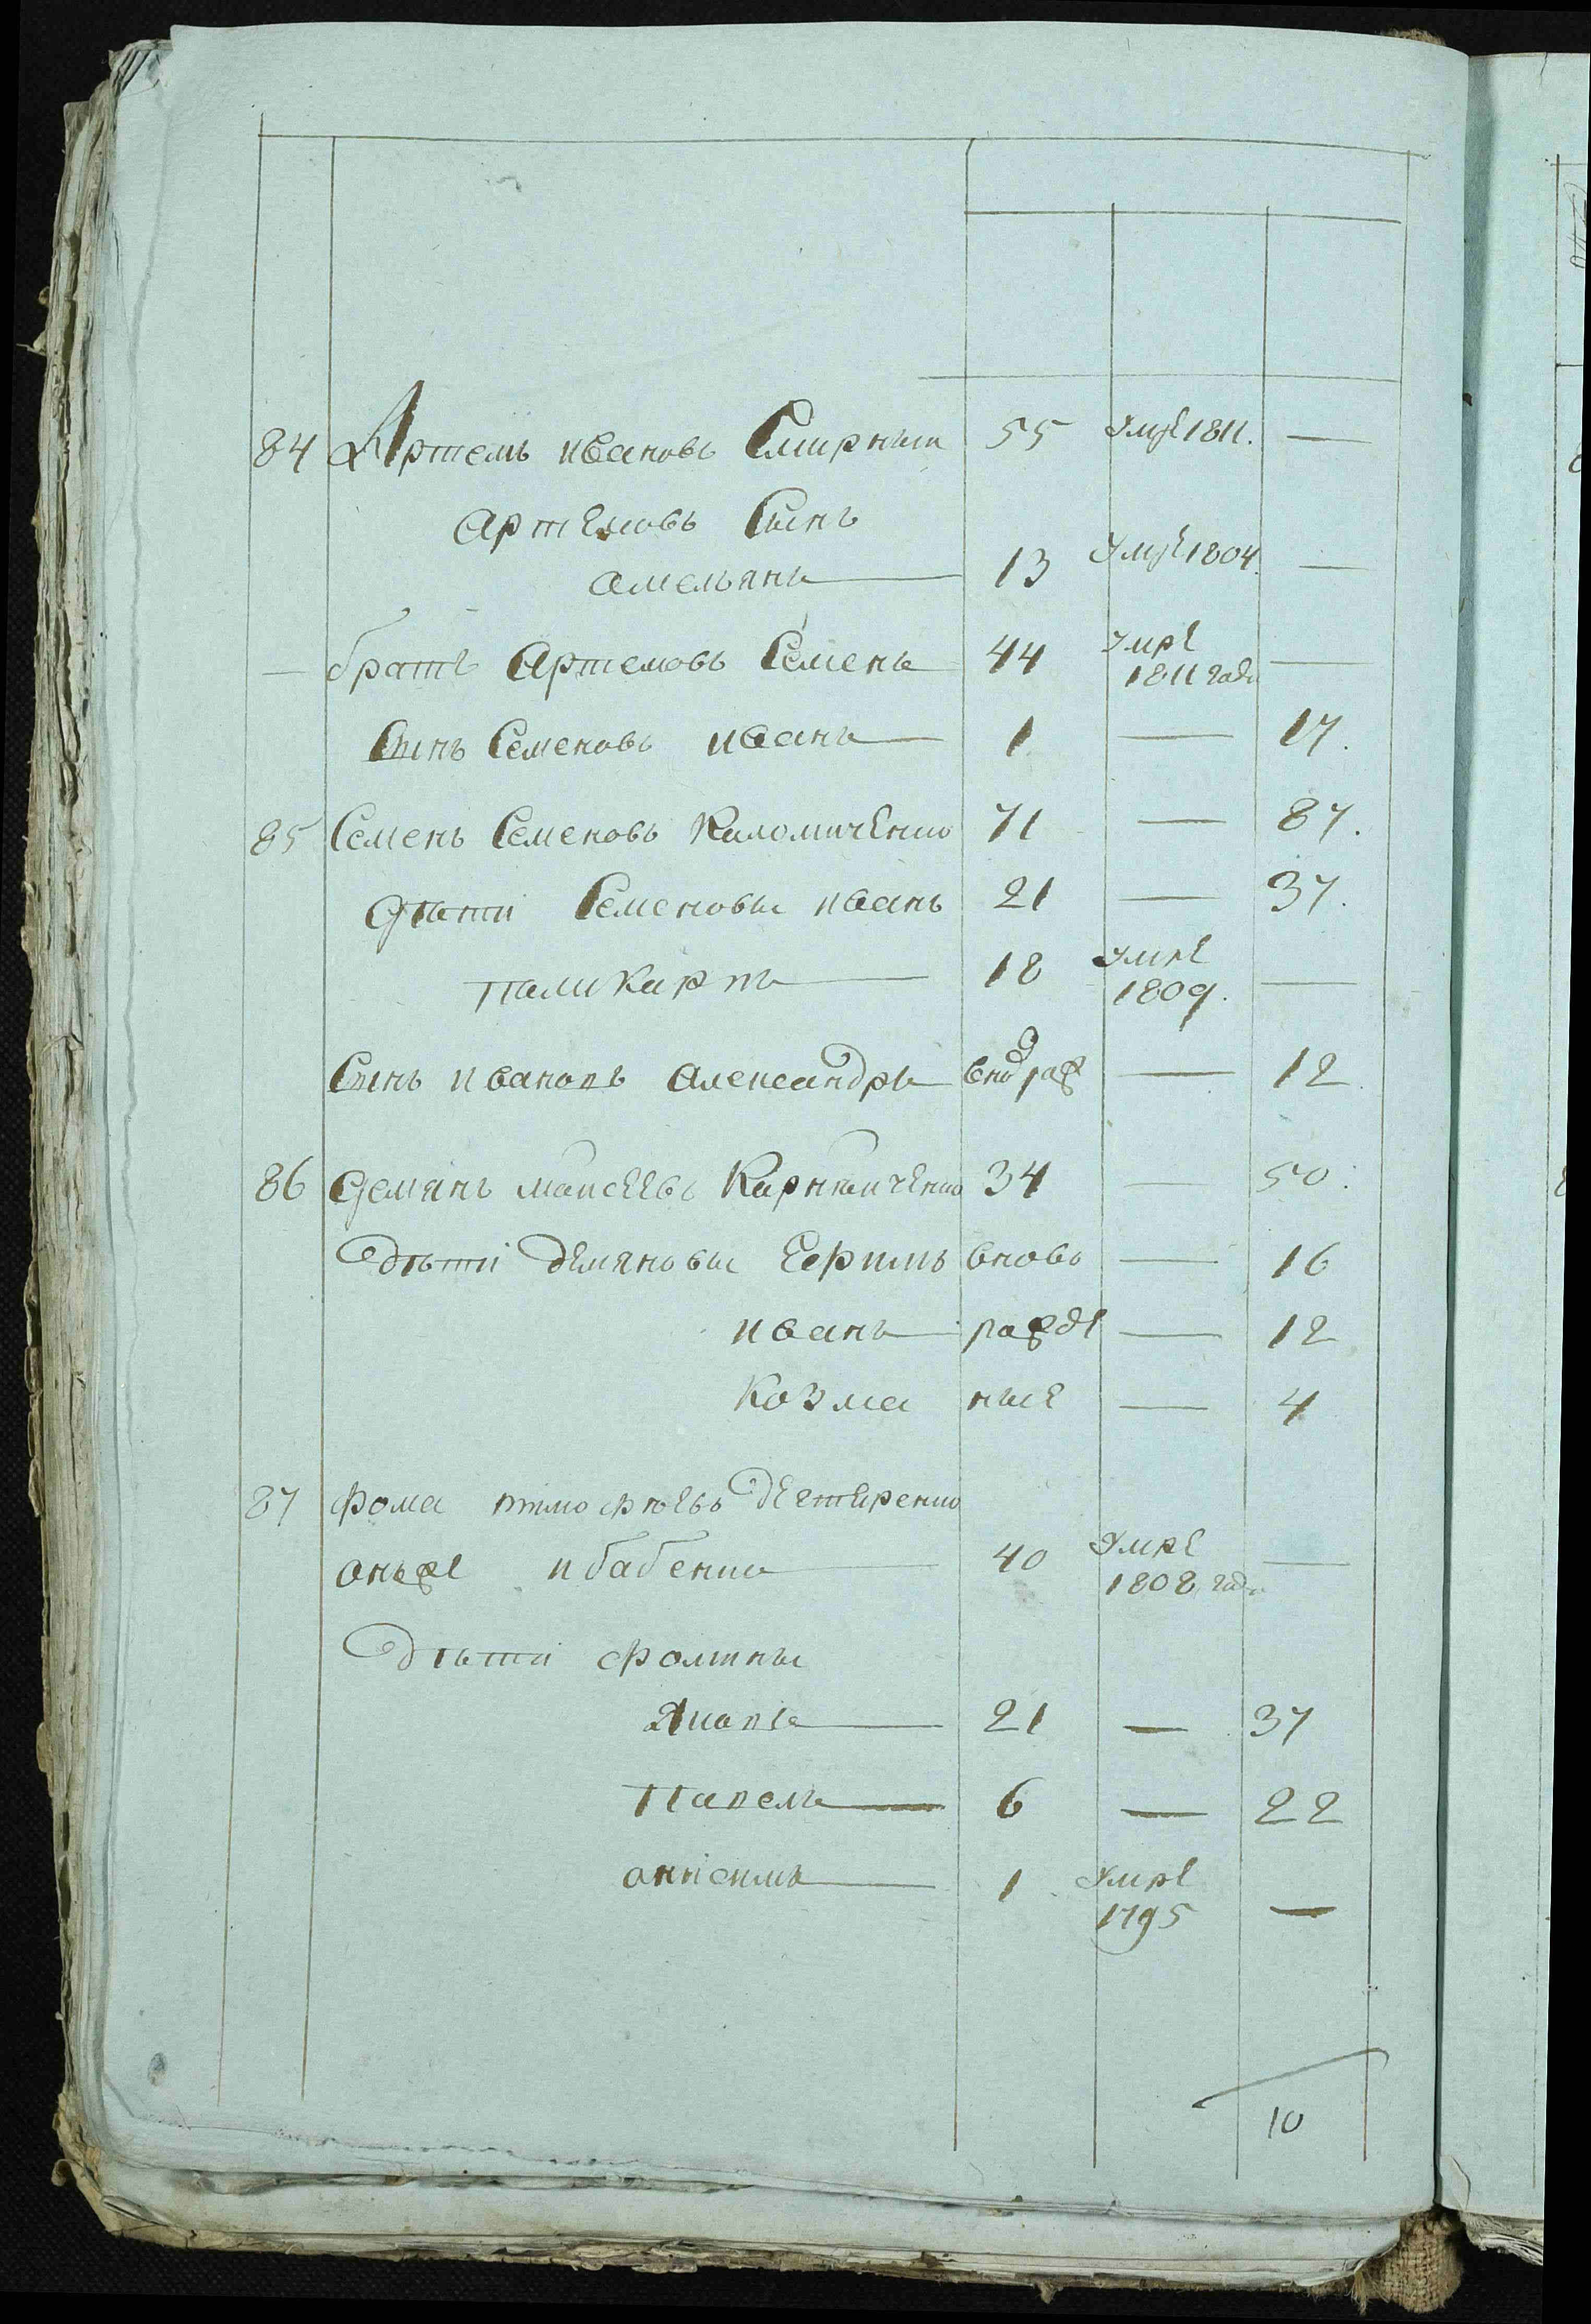 84 Артемъ ивановъ Смирныи 55 Умре 1811. —
Артемовъ Сынъ
амельянъ — 13 Умре 1804. —
— братъ Артемовъ Семенъ 44 Умре 1811 года —
Сынъ Семеновъ иванъ — 1 — 17.
85 Семенъ Семеновъ Каломиченко 71 — 87.
Дѣти Семеновы иванъ 21 — 37.
паликарпъ — 18 Умре 1809. —
Сынъ ивановъ александръ — внов рож — 12
86 Демянъ маисеевъ 34 — 50.
Дѣти демяновы вновь — 16
иванъ — рожде — 12
козма ные — 4
87 фома тимофѣевъ дегтеренко
онже и бабенко — 40 Умре 1808 года —
Дѣти фомины
Яковъ — 21 — 37
Павелъ — 6 — 22
онисимъ — 1 Умре 1795 —
10